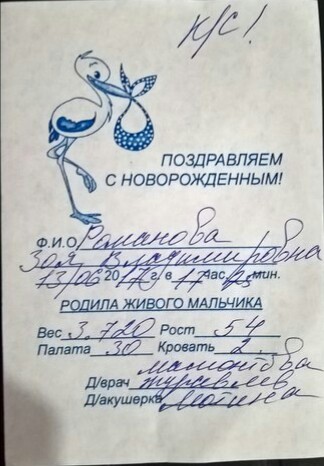 К/С!
ПОЗДРАВЛЯЕМ
С НОВОРОЖДЕННЫМ!
Ф.И.О Романова
Зоя Владимировна
13/06 20 г. в 17 час. мин.
РОДИЛА ЖИВОГО МАЛЬЧИКА
Вес 3.720 Рост 54
Палата 30 Кровать 2
Мамонтова
Д/врач Журавлев
Д/акушерка Мотина